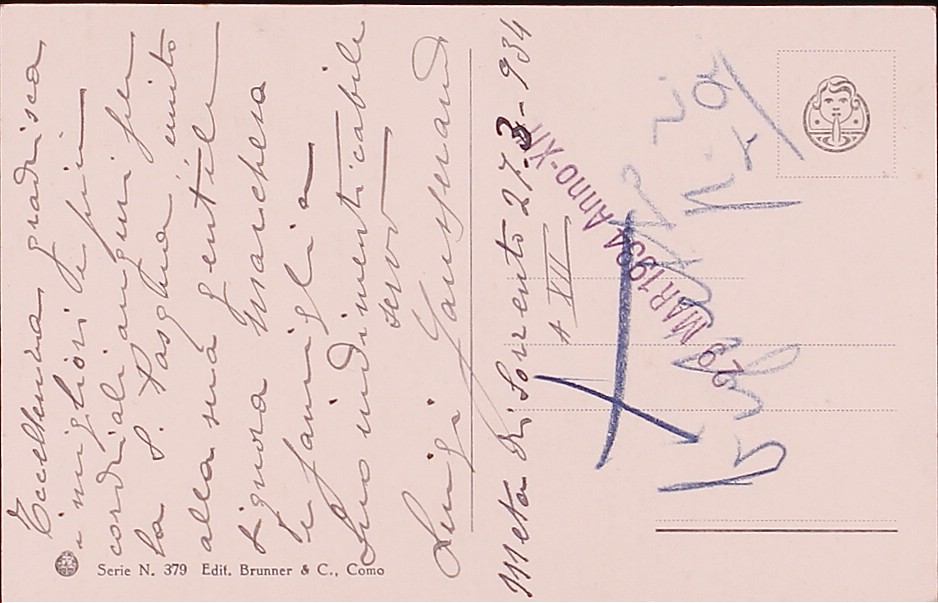 Eccellenza gradisca
i migliori e più
cordiali auguri per
la S. Pasqua, unito
alla sua gentile
Signora Marchesa
e famiglia
Suo indimenticabile
servo
Luigi
Meta di Sorrento 27-3-934
A XII
29 MAR 1934 Anno XII
Serie N. 379 Edit. Brunner & C., Como